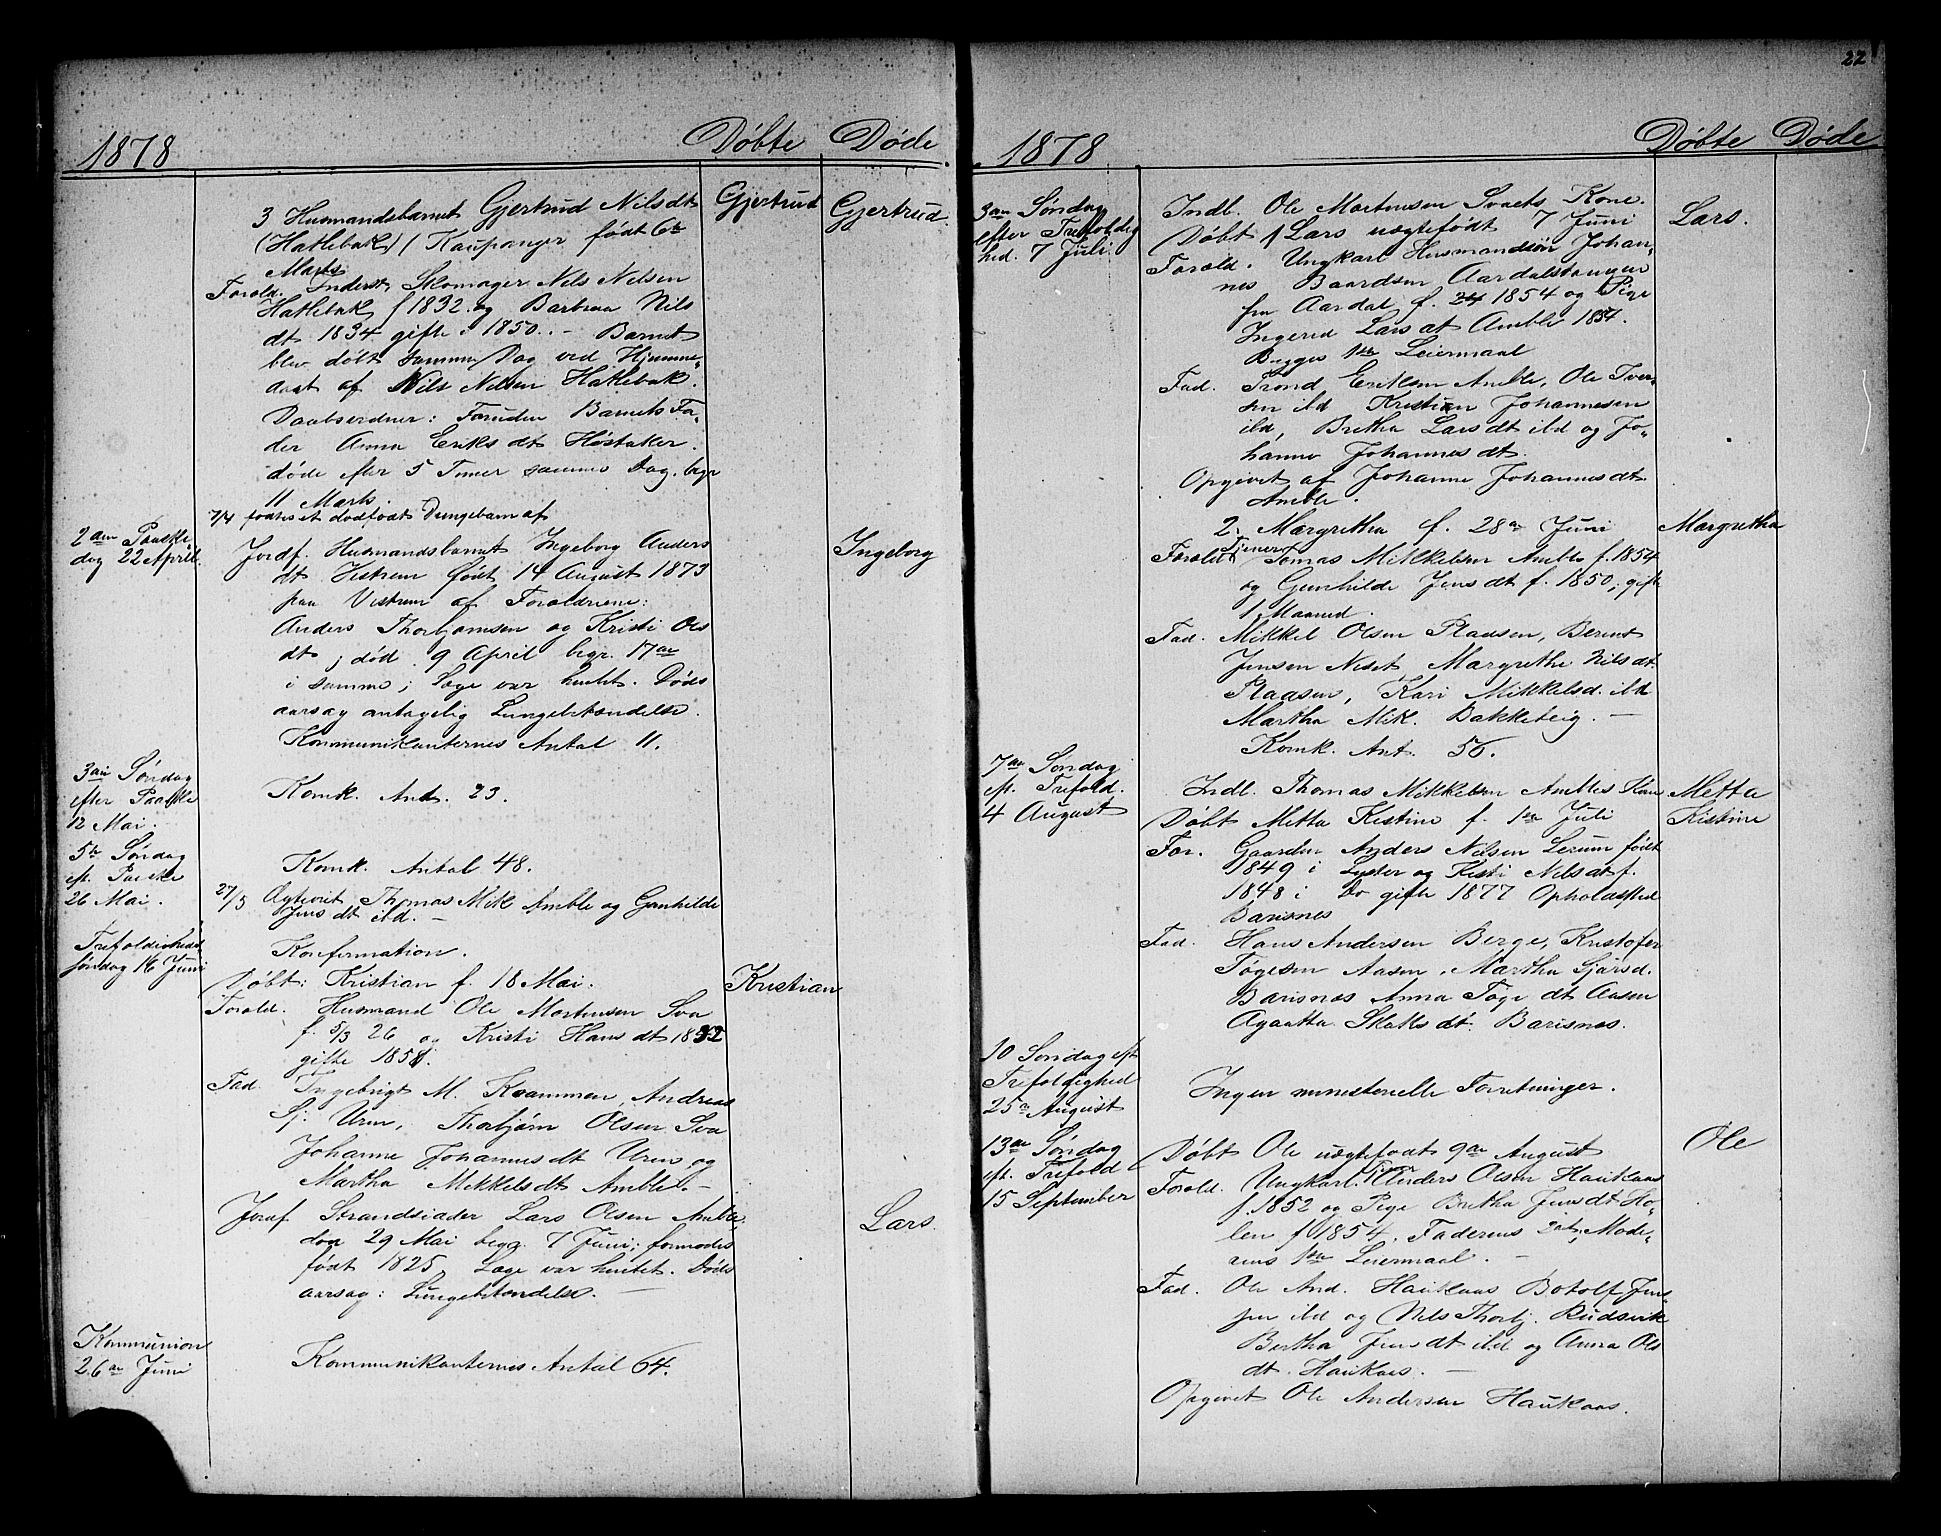 22
1878
Døbte Døde
3 Husmandsbarnet Gjertrud Nilsdt
Gjertrud
Gjertrud.
(Hatlebak) / Kaupanger født 6te
Marts
Forold. Inderst, Skomager Nils Nilsen
Hatlebak f 1832 og Barbraa Nils
dt 1834 gifte i 1850. - Barnet
blev døbt samme Dag ved Hjemme„
daab af Nils Nilsen Hatlebak.
Daabsvidner: Foruden Barnets Fa„
der Anna Eriks dt Høstaker.
døde efter 5 Timer samme Dag, begr
11 Marts.
7/4 fødtes et dødfødt Drengebarn af
2den Paaske
dag 22 April.
Jordf. Husmandsbarnet Ingeborg Anders
Ingeborg
dt Vistrem født 14 August 1873
paa Vistrem af Forældrene:
Anders Thorbjørnsen og Kristi Ols
dt, død 9 April begr. 17de
i samme; Læge var hentet. Døds
aarsag antagelig Lungebetændelse.
Kommunikanternes Antal 11.
3die Søndag
efter Paaske
12 Mai.
Komk. Ant. 23.
5te Søndag
eft. Paaske
26 Mai.
Komk. Antal 48.
27/5 Ægteviet Thomas Mik Amble og Gunhilde
Jens dt ibd. -
Trefoldigheds
søndag 16 Juni
Konfirmation.
Døbt: Kristian f. 18 Mai.
Kristian
Forold. Husmand Ole Mortensen Sva
f. 5/3 26 og Kristi Hans dt 1832
gifte 1851.
Fad. Ingebrigt M. Kvammen, Andreas
Sj. Uren, Thorbjørn Olsen Sva
Johanne Johannesdt Uren og
Martha Mikkelsdt Amble. -
Jordf Strandsidder Lars Olsen Amble
Lars.
død 29 Mai begr. 7 Juni; formodes
født 1825, Læge var hentet. Døds
aarsag: Lungebetændelse. -
Kommunion
26de Juni
Kommunikanternes Antal 64.
1878
Døbte Døde
3die Søndag
efter Trefoldig
hed. 7 Juli
Indl. Ole Mortensen Svaets Kone.
Døbt 1 Lars uægtefødt 7 Juni
Lars.
Forold. Ungkarl Husmandssøn Johan„
nes Baardsen Aardalstangen
fra Aardal f. 1854 og Pige
Ingerid Lars dt Amble 1854.
Begges 1ste Leiermaal
Fad. Trond Eriksen Amble, Ole Iver„
sen ibd Kristian Johannesen
ibd, Bretha Larsdt ibd og Jo„
hanne Johannesdt.
Opgivet af Johanne Johannesdt
Amble.
2. Margretha f. 28de Juni
Margretha
Forold. Tjener Tomas Mikkelsen Amble f. 1854
og Gunhilde Jensdt f. 1850, gift
1 Maaned.
Fad. Mikkel Olsen Plaasen, Berent
Jensen Neset, Margrethe Nilsdt
Plaasen, Kari Mikkelsd. ibd
Martha Mik. Bakketeig. -
Komk. Ant. 56.
7de Søndag
eft. Trefold.
4 August
Indl. Thomas Mikkelsen Ambles Kone
Døbt Metta Kistine f. 1ste Juli
Metta
Kistine
For. Gaardm Anders Nilsen Lerum født
1849 i Lyster og Kisti Nilsdt f.
1848 i Do gifte 1877 Opholdssted
Barisnes
Fad. Hans Andersen Berge, Kristofer
Tøgesen Aasen, Martha Sjursd.
Barisnes Anna Tøge dt Aasen
Agaatha Skaks dt. Barisnes.
10 Søndag eft
Trefoldighed
25de August
Ingen ministerielle Forretninger.
13de Søndag
eft. Trefold
15 September
Døbt Ole uægtefødt 9de August
Ole
Forold. Ungkarl Tjener Anders Olsen Haukaas
f. 1852 og Pige Bretha Jensdt Ho„
len f 1854. Faderens 2det, Mode„
rens 1ste Leiermaal. -
Fad. Ole And. Haukaas Botolf Jen„
sen ibd og Nils Thorbj. Rudsvik
Bertha Jens dt ibd og Anna Ols
dt. Haukaas. -
Opgivet Ole Andersen Haukaas.